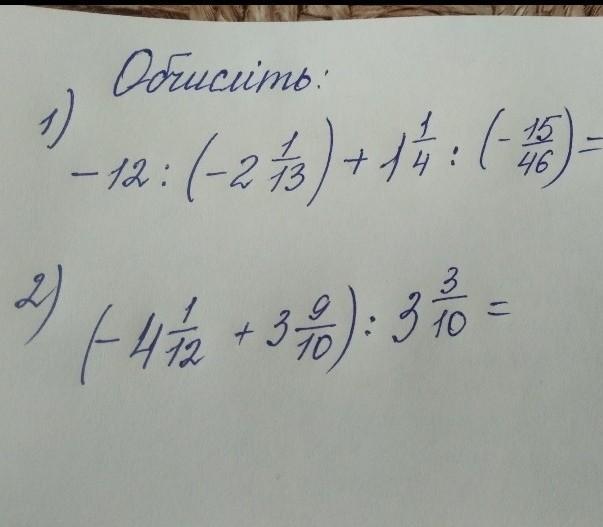 Обчисліть:
1)
-12 : (-2 1/13) + 1 1/4 : (-15/46) =
2)
(-4 1/12 + 3 9/10) : 3 3/10 =